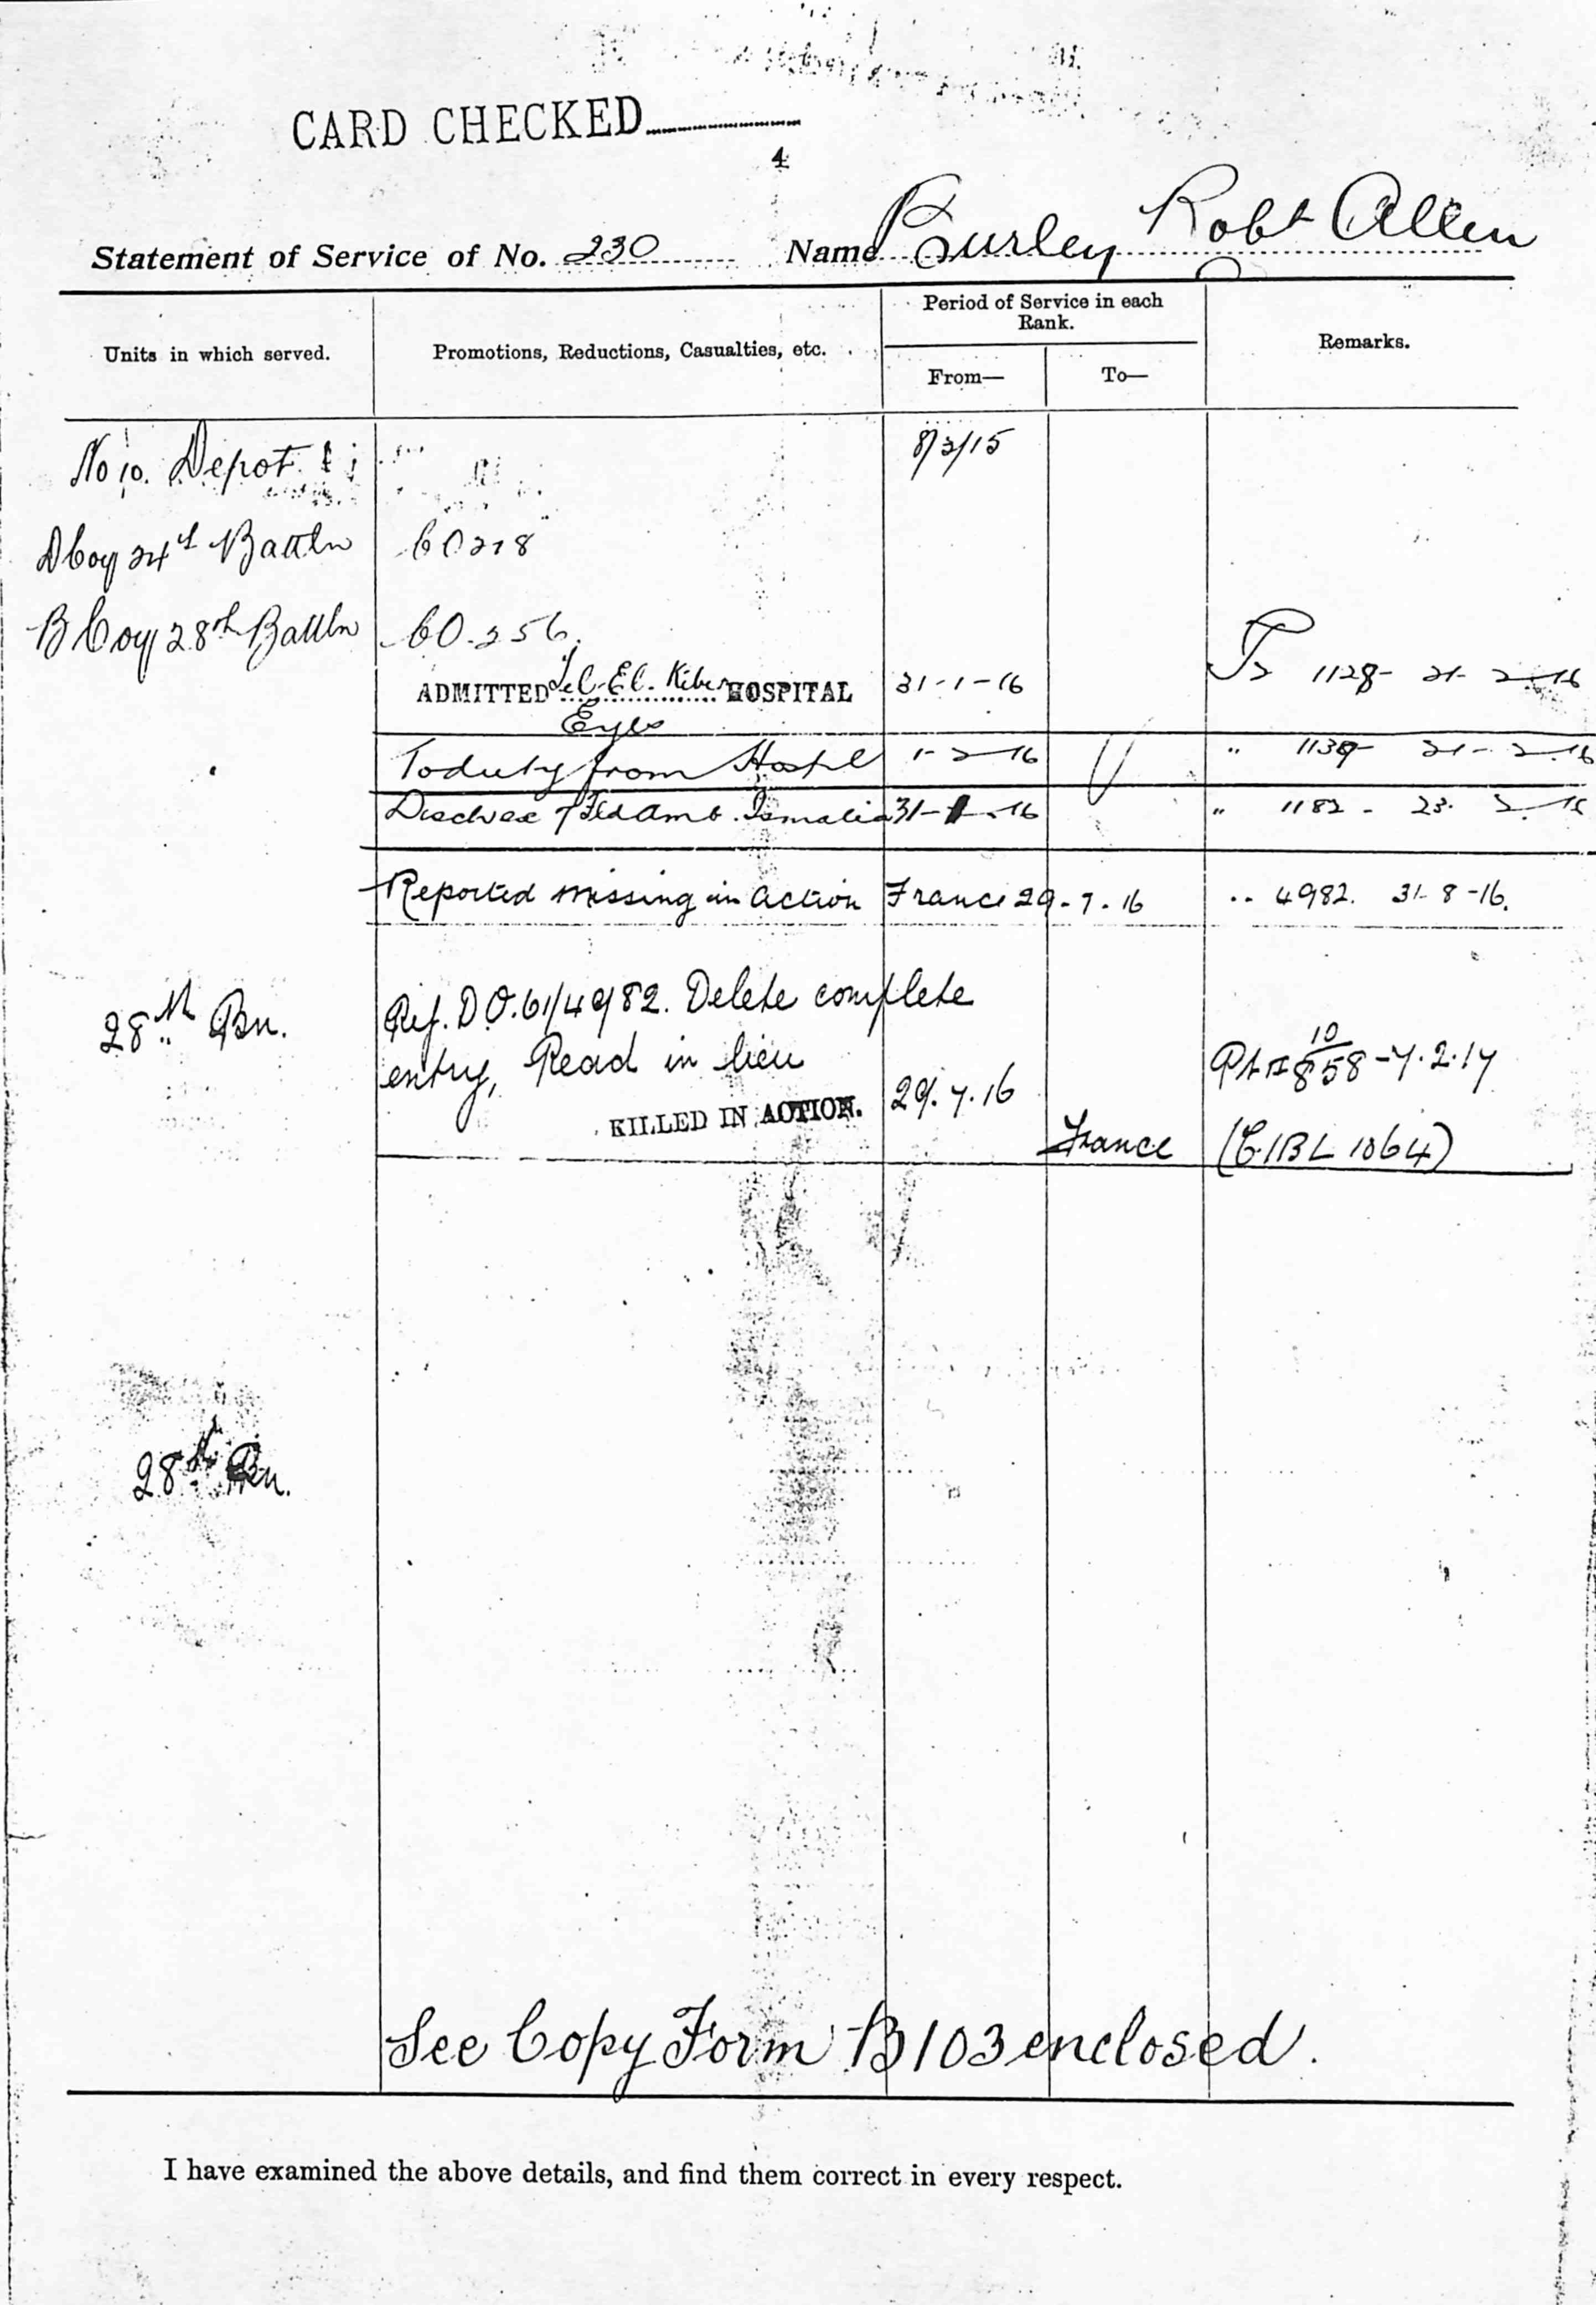 CARD CHECKED
4
Statement of Service of No. 230 Name Burley Robt Allen
Units in which served. Promotions, Reductions, Casualties, etc. Period of Service in each Rank. From— To— Remarks.
No 10. Depot 8/3/15
D Coy 24th Battln 60218
B Coy 28th Battln 60.256.
ADMITTED Tel-El-Kiber HOSPITAL 31-1-16 1128- 21-2-16
Eyes
To duty from Hospl 1-2-16 " 1139- 21-2-16
Fld Amb. Ismalia 31-1-16 " 1182- 23.2-16
Reported missing in action France 29-7-16 " 4982. 31-8-16.
28th Bn. Ref. D O. 61/4982. Delete complete
entry, Read in lieu
KILLED IN ACTION. 29.7.16 10 858-7.2.17
France (C.1BL 1064)
28th Bn.
See Copy Form B103 enclosed.
I have examined the above details, and find them correct in every respect.